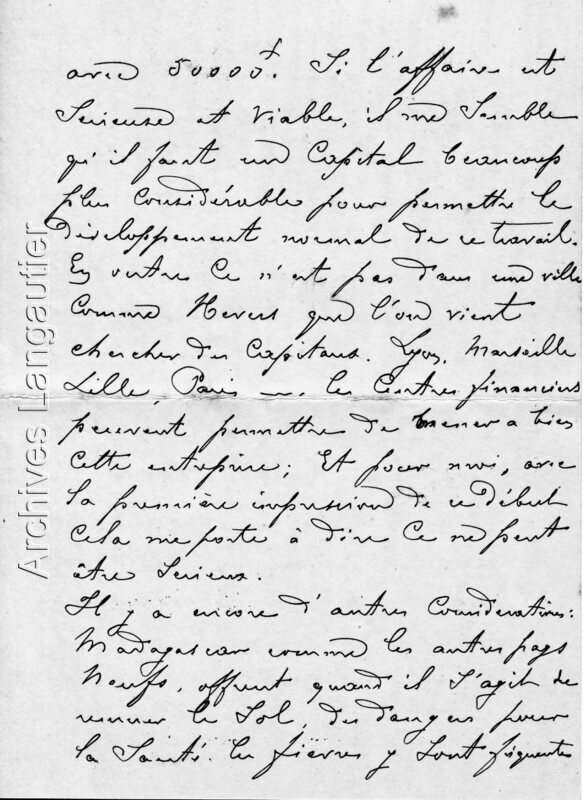 avec 50000f. Si l'affaire est
Serieuse et viable, il me Semble
qu'il faut un Capital beaucoup
plus Considérable pour permettre le
développement normal de ce travail.
En outre Ce n'est pas dans une ville
Comme Nevers que l'on vient
chercher des Capitaux. Lyon, Marseille
Lille Paris les Centres financiers
peuvent permettre de mener a bien
Cette entreprise; Et pour moi, avec
la première impression de ce début
Cela me porte à dire Ce ne peut
être Serieux.
Il y a encore d'autres Considerations:
Madagascar comme les autres pays
Neufs, offrent quand il S'agit de
remuer le Sol, des dangers pour
la Santé. les fièvres y Sont fréquentes
Archives Langautier